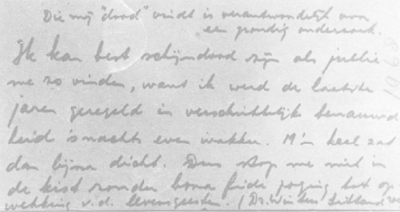 Die mij "dood" vindt is verantwoordelijk voor
een grondig onderzoek.
Ik kan best schijndood zijn als jullie
me zo vinden, want ik werd de laatste
jaren geregeld in verschrikkelijk benauwd
heid 's nachts even wakker. M'n keel zat
dan bijna dicht. Dus stop me niet in
de kist zonder bona fide poging tot op
wekking v.d. levensgeesten. (Dr.